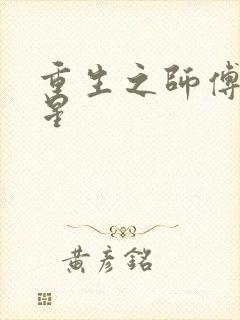 重生之師傅
星
黃彥銘